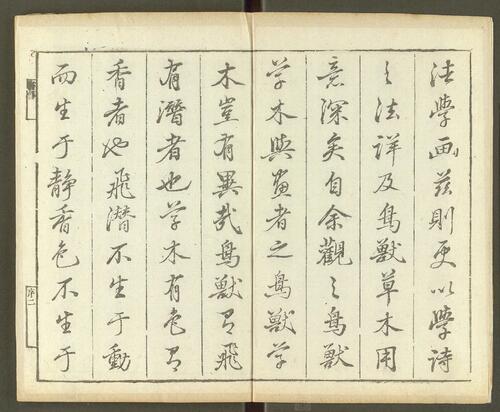 法學画茲則更以學詩
之法詳及鳥獸草木用
意深矣自余觀之鳥獸
艸木與畫者之鳥獸艸
木豈有異哉鳥獸有飛
有潛者也艸木有色有
香者也飛潛不生于動
而生于靜香色不生于
序二